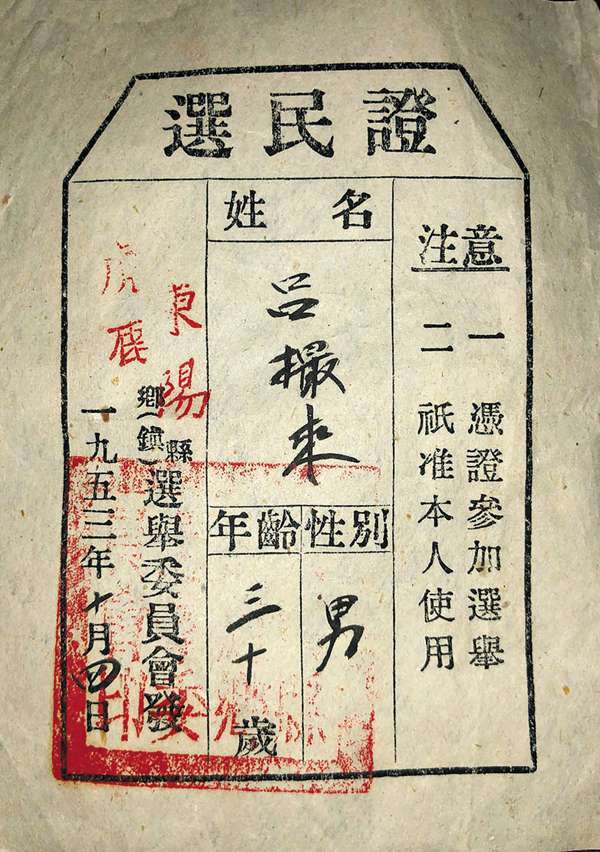 選民證
注意
一 憑證參加選舉
二 祇准本人使用
姓名
呂撮來
性別
男
年齡
三十歲
東陽縣
虎鹿鄉(鎮)選舉委員會發
一九五三年十月四日